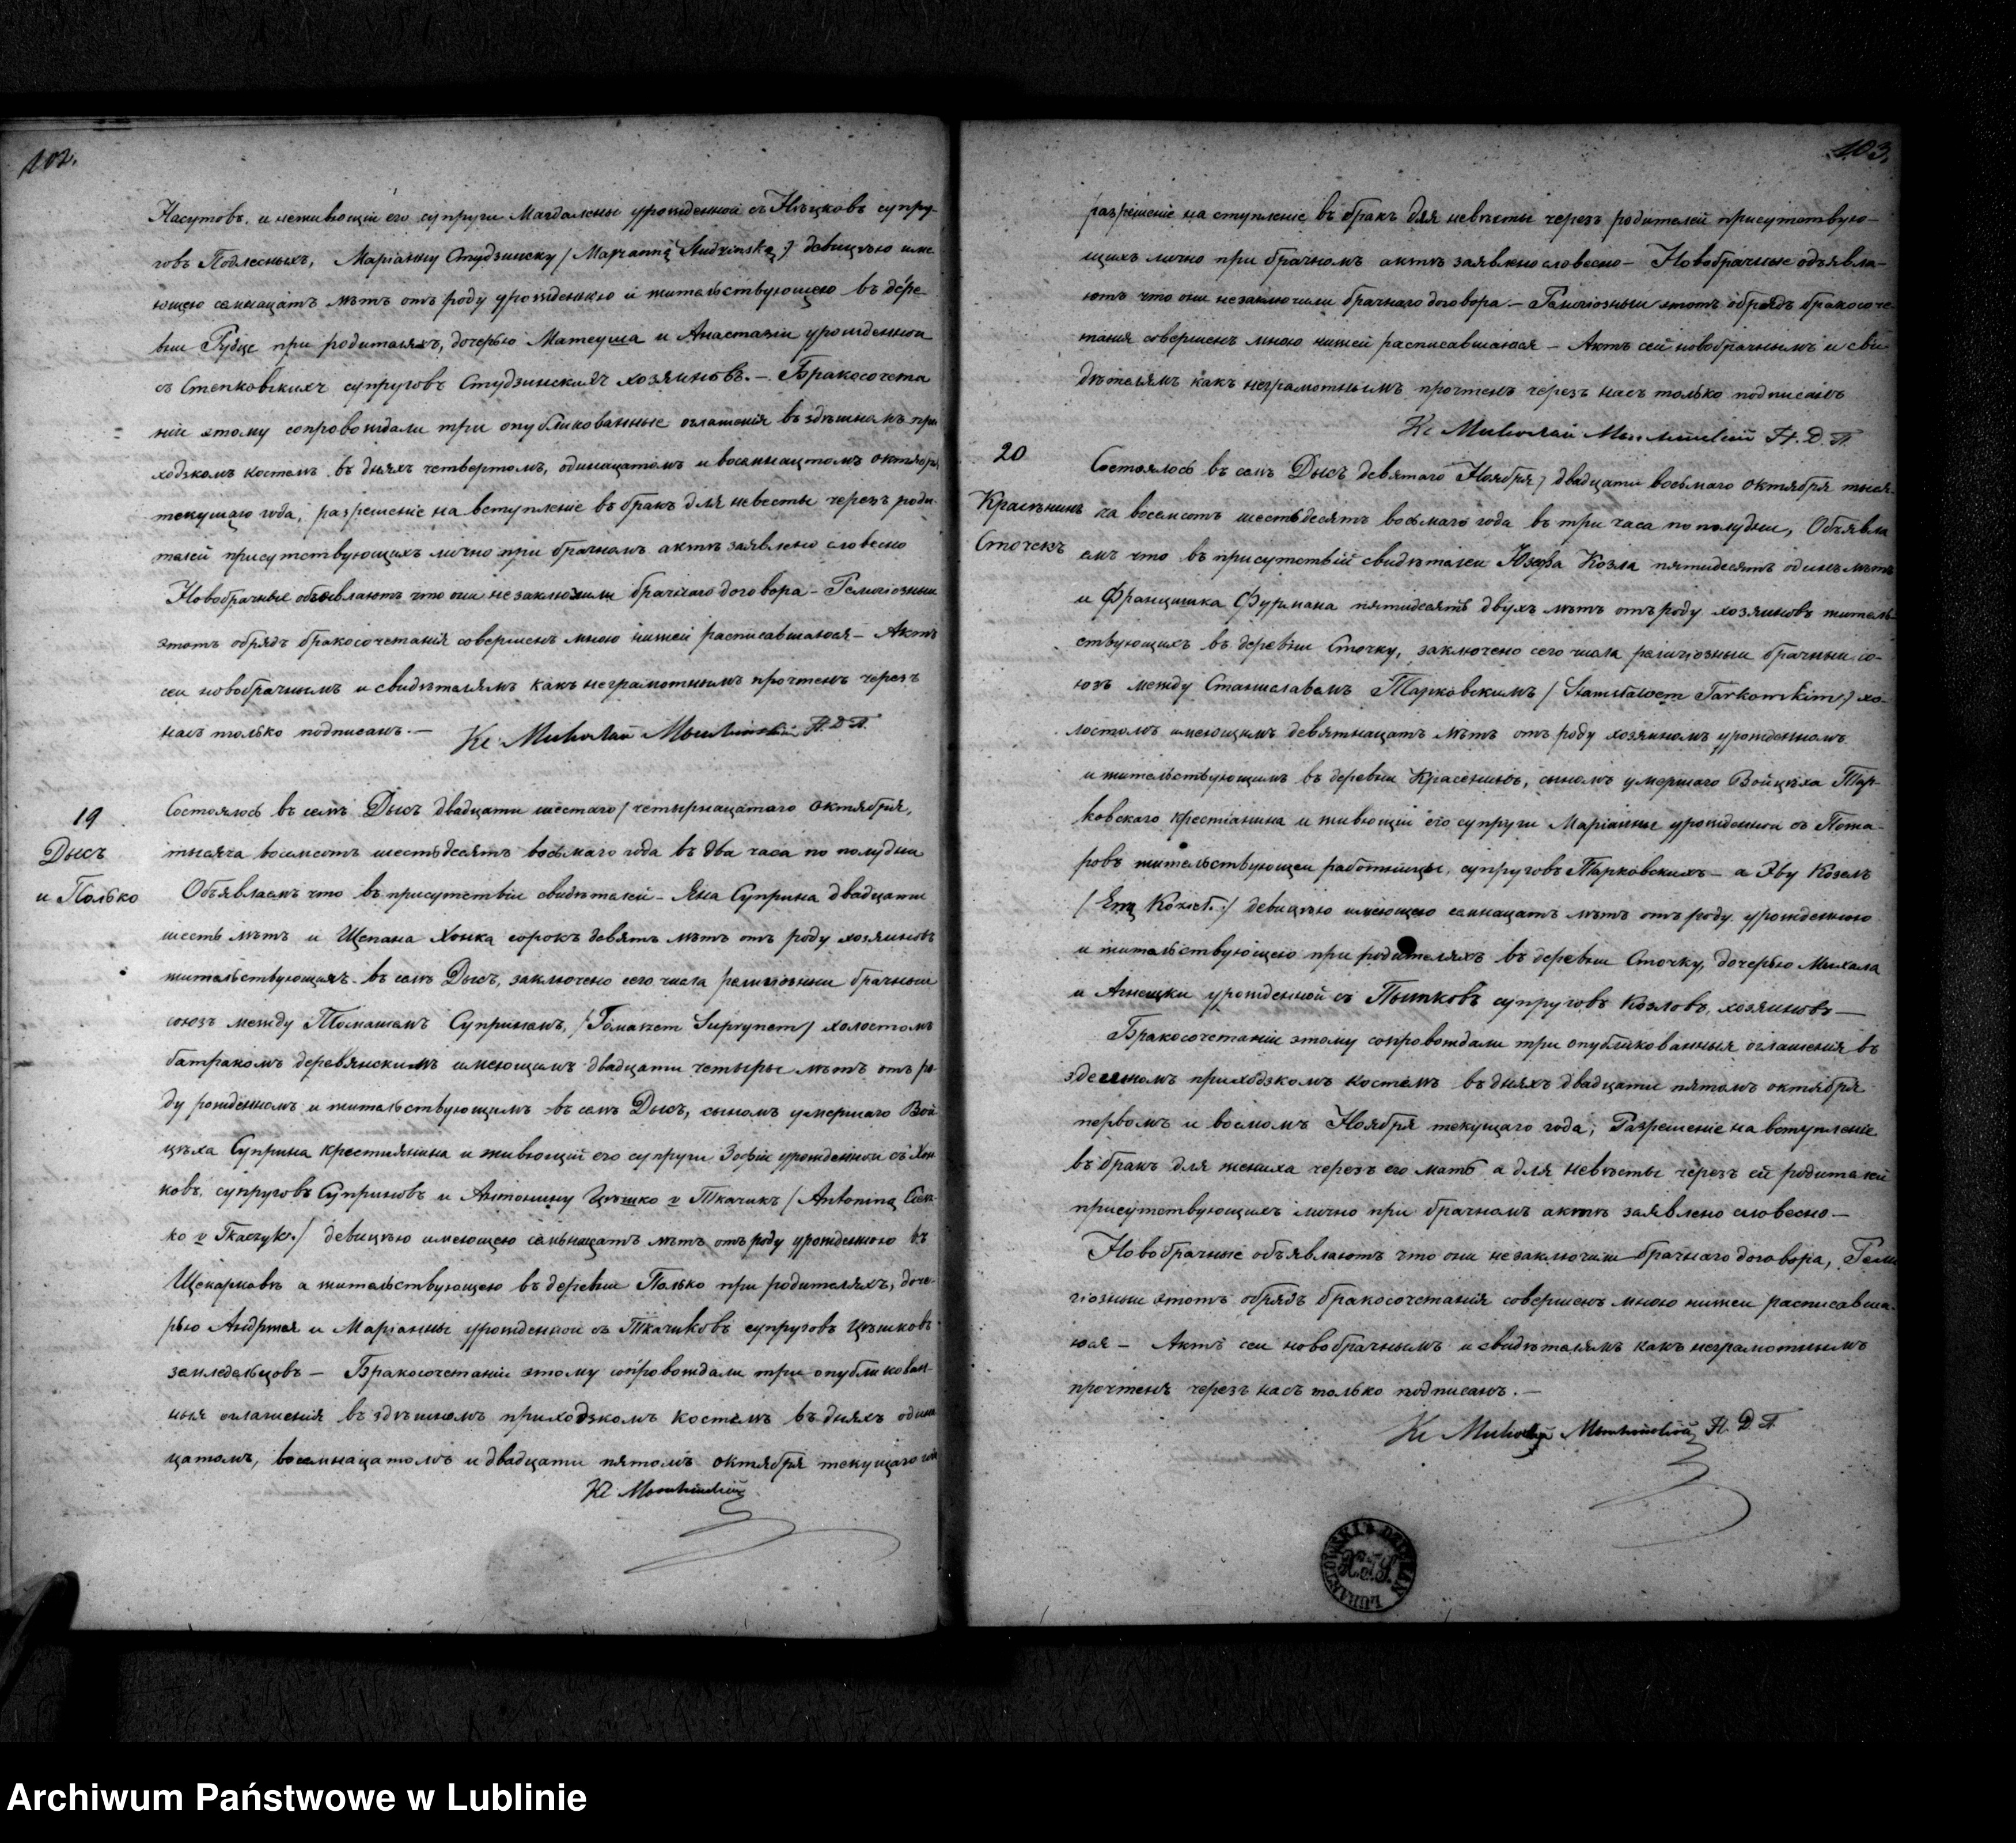 102.
Насутовъ, и неживющiи его супруги Магдалены урожденной съ Нѣцковъ супру-
говъ Подлесныхъ, Марiанну Студзинску / Maryanną Studzinską / девицѣю име-
ющею семнацать лѣтъ отъ роду урожденною и жительствующею въ дере
вни Рудце при родителяхъ, дочерью Матеуша и Анастазiи урожденной
съ Степковскихъ супруговъ Студзинскихъ хозяиновъ. — Бракосочета
нiи этому сопровождали три опубликованные оглашенiя въ здѣшномъ при
ходзкомъ костелѣ въ дняхъ четвертомъ, одинацатомъ и восемнацтомъ октября
текущаго года, разрешенiе на вступленiе въ бракъ для невесты черезъ роди
телей присутствующихъ лично при брачномъ актѣ заявлено словесно
Новобрачные объевлаютъ что они незаключили брачнаго договора — Религiозныи
этотъ обрядъ бракосочетанiя совершенъ мною нижей расписавшаюся — Актъ
сеи новобрачнымъ и свидѣтелямъ какъ неграмотнымъ прочтенъ черезъ
насъ только подписанъ. —
Кс Миколай Мысли́нскiй Н. Д. П.
19
Дысъ
и Полько
Состоялось въ селѣ Дысъ двадцати шестаго / четырнацатаго октября,
тысяча восемсотъ шестьдесятъ восьмаго года въ два часа по полудни
Объявлаемъ что въ присутствiи свидѣтелей — Яна Суприна двадцати
шесть лѣтъ и Щепана Хонка сорокъ девять лѣтъ отъ роду хозяиновъ
жительствующихъ въ селѣ Дысъ, заключено сего числа религiозныи брачныи
союзъ между Томашемъ Супринамъ, / Tomaszem Suprynem / холостомъ
батракомъ деревянскимъ имеющимъ двадцати четыры лѣтъ отъ ро-
ду рожденномъ и жительствующимъ въ селѣ Дысъ, сыномъ умершаго Вой
цѣха Суприна крестиянина и живющiй его супруги Зофiи урожденной съ Хон
ковъ, супруговъ Суприновъ и Антонину Цѣшко v Ткачикъ / Antoniną Cież-
ko v Tkaczyk / девицѣю имеющею семьнацать лѣтъ отъ роду урожденною въ
Щекарковѣ а жительствующею въ деревни Полько при родителяхъ, доче-
рью Андржея и Марiанны урожденной съ Ткачиковъ супруговъ Цѣшковъ
земледельцовъ — Бракосочетанiи этому сопровождали три опубликован-
ныя оглашенiя въ здѣшномъ приходзкомъ костелѣ въ дняхъ одина
цатомъ, восемнацатомъ и двадцати пятомъ октября текущаго года
Кс Мыслинскiй
103.
разрешенiе на ступленiе въ бракъ для невѣсты черезъ родителей присутствую-
щихъ лично при брачномъ актѣ заявлено словесно — Новобрачные объявла-
ютъ что они незаключили брачнаго договора — Религiозныи этотъ обрядъ бракосоче
танiя совершенъ мною нижей расписавшаюся — Актъ сей новобрачнымъ и сви
дѣтелямъ какъ неграмотнымъ прочтенъ черезъ насъ только подписанъ
Кс Миколай Мыслинскiй Н. Д. П.
20
Красѣнинъ
Сточекъ
Состоялось въ селѣ Дысъ девятаго Ноября / двадцати восьмаго октября тыся-
ча восемсотъ шестьдесятъ восьмаго года въ три часа пополудни, Объявла
емъ что въ присутствiй свидѣтелеи Юзефа Козла пятидесятъ одинъ лѣтъ
и Францишка Фурмана пятидесятъ двухъ лѣтъ отъ роду хозяиновъ житель-
ствующихъ въ деревни Сточку, заключено сего числа религiозныи брачныи со-
юзъ между Станиславемъ Тарковскимъ / Stanisławem Tarkowskim / хо-
лостомъ имеющимъ девятнацать лѣтъ отъ роду хозяиномъ урожденномъ
и жительствующимъ въ деревни Красенинѣ, сыномъ умершаго Войцѣха Тар-
ковскаго крестiанина и живющiи его супруги Марiанны урожденной съ Пожа-
ровъ жительствующеи работницы, супруговъ Тарковскихъ — а Эву Козелъ
/ Ewą Kozieł / девицѣю имеющею семнацать лѣтъ отъ роду урожденною
и жительствующею при родителяхъ въ деревни Сточку, дочерью Михала
и Агнешки урожденной съ Пытковъ супруговъ Козловъ, хозяиновъ —
Бракосочетанiи этому сопровождали три опубликованныя оглашенiя въ
здесшномъ приходзкомъ костелѣ въ дняхъ двадцати пятомъ октября
первомъ и восмомъ Ноября текущаго года; Разрешенiе на вступленiе
въ бракъ для жениха черезъ его мать а для невѣсты черезъ ей родителей
присутствующихъ лично при брачномъ актѣ заявлено словесно —
Новобрачные объявлаютъ что они незаключили брачнаго договора, Рели
гiозныи этотъ обрядъ бракосочетанiя совершенъ мною нижеи расписавша-
юся — Актъ сеи новобрачнымъ и свидѣтелямъ какъ неграмотнымъ
прочтенъ черезъ насъ только подписанъ. —
Кс Миколай Мыслинскiй Н. Д. П.
Archiwum Państwowe w Lublinie